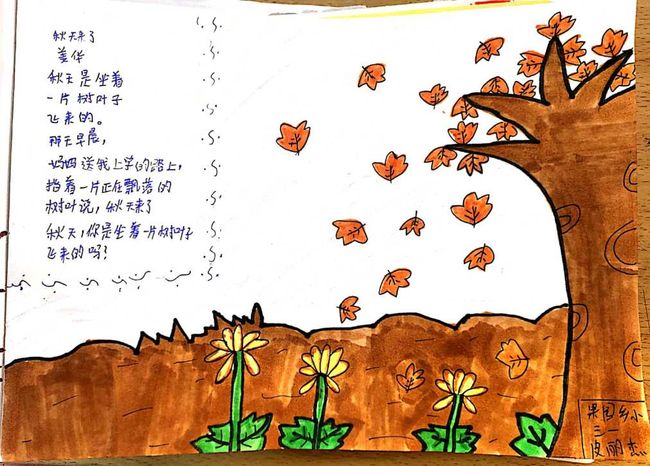 秋天来了
姜华
秋天是坐着
一片树叶子
飞来的。
那天早晨,
妈妈送我上学的路上,
指着一片正在飘落的
树叶说,秋天来了
秋天,你是坐着一片树叶子
飞来的吗?
果园乡小
三一
皮丽杰